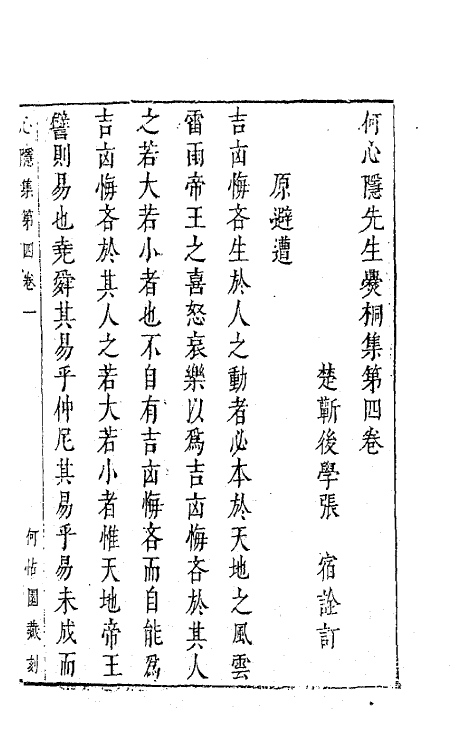 何心隱先生爨桐集第四卷
楚蘄後學張　宿詮訂
原避遭
吉凶悔吝生於人之動者必本於天地之風雲
雷雨帝王之喜怒哀樂以爲吉凶悔吝於其人
之若大若小者也不自有吉凶悔吝而自能爲
吉凶悔吝於其人之若大若小者惟天地帝王
譬則易也堯舜其易乎仲尼其易乎易未成而
心隱集第四卷　一　何怙園藏刻